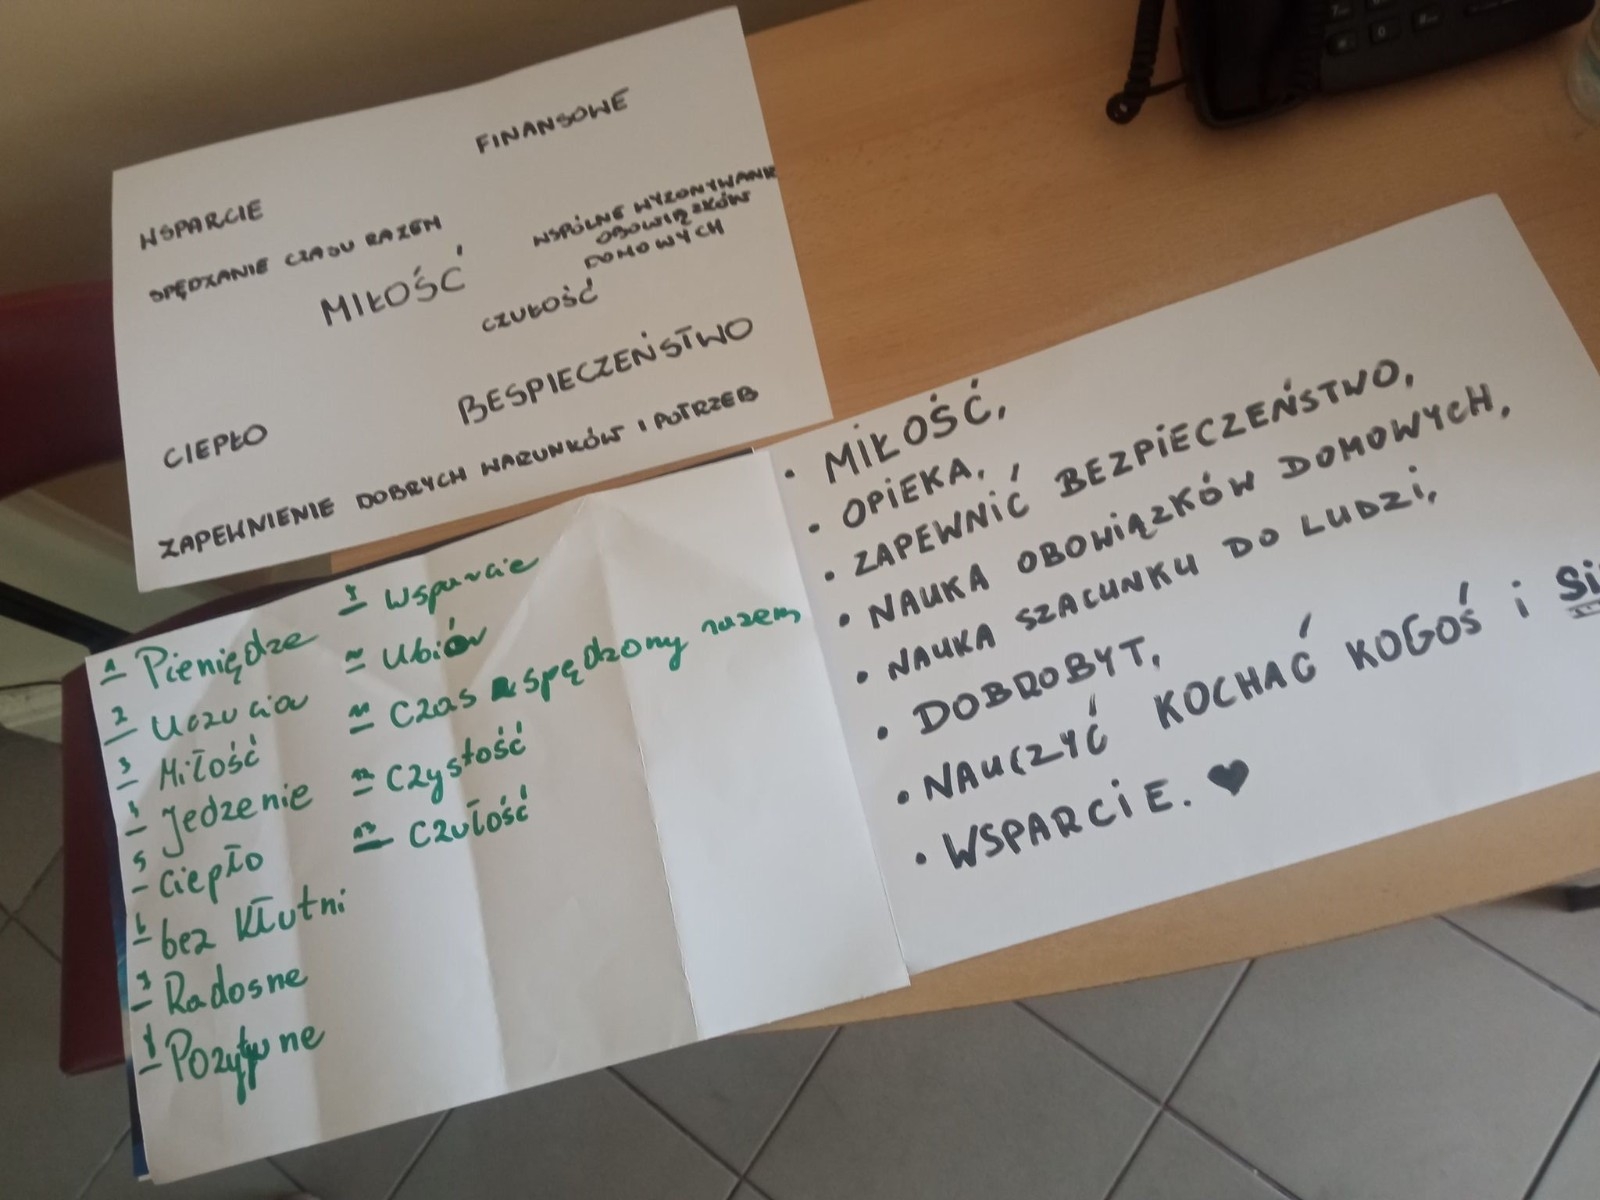 FINANSOWE
WSPARCIE
SPĘDZANIE CZASU RAZEM
WSPÓLNE WYZONYWANI
OBOWIĄZKÓW
DOMOWYCH
MIŁOŚĆ
CZUŁOŚĆ
BESPIECZEŃSTWO
CIEPŁO
ZAPEWNIENIE DOBRYCH WARUNKÓW I POTRZEB
1 Pieniędze
2 Uczucia
3 Miłość
4 Jedzenie
5 Ciepło
6 bez Kłutni
7 Radosne
8 Pozytywne
9 Wsparcie
10 Ubiór
11 Czas spędzony razem
12 Czystość
13 Czułość
• MIŁOŚĆ,
• OPIEKA,
• ZAPEWNIĆ BEZPIECZEŃSTWO,
• NAUKA OBOWIĄZKÓW DOMOWYCH,
• NAUKA SZACUNKU DO LUDZI,
• DOBROBYT,
• NAUCZYĆ KOCHAĆ KOGOŚ i Si
• WSPARCIE. ♥